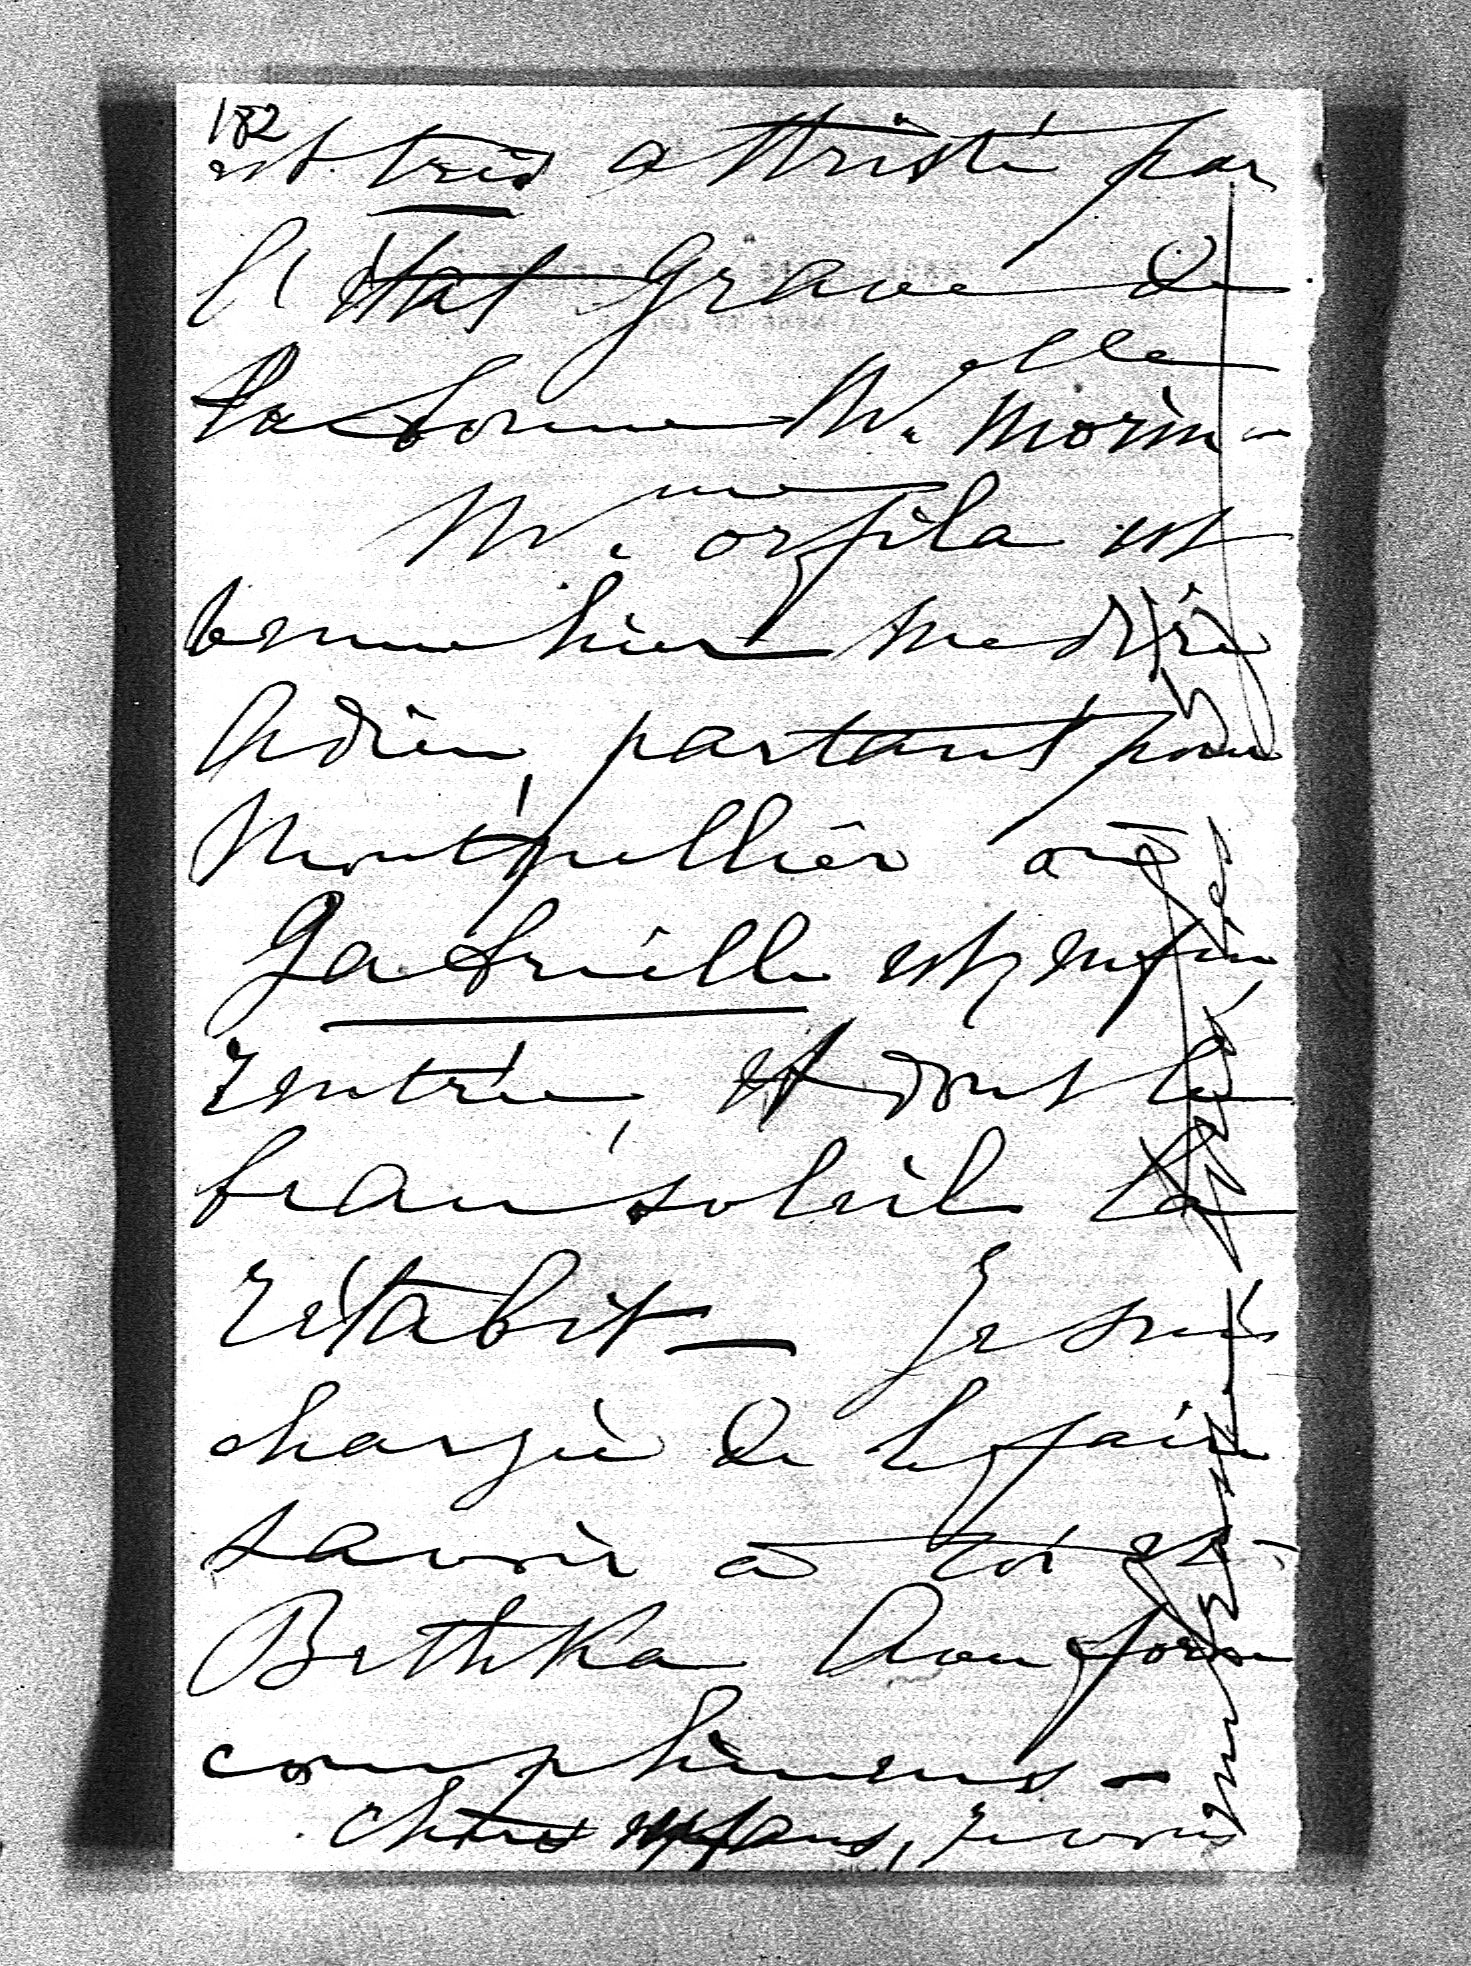 182
est très attristé par
l'état grave de
la bonne Melle Morin -
Mme Orfila est
venue hier me dire
Adieu, partant pour
Montpellier où
Gabrielle est enfin
rentrée, et dont le
beau soleil la
rétablit — Je suis
chargée de le faire
savoir à toi et
Bertha avec force
complimens -
chers enfans, je vous